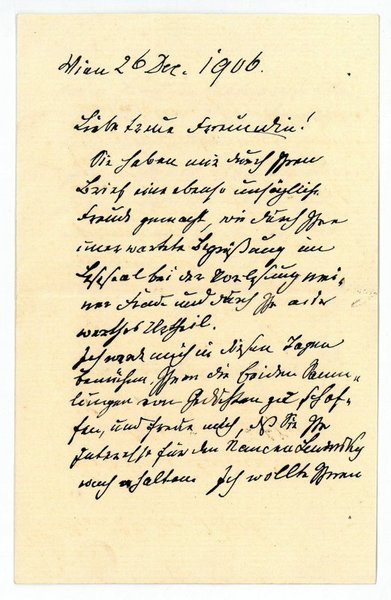 Wien 26 Dec. 1906.
Liebe treue Freundin!
Sie haben mir durch Ihren
Brief eine ebenso unsägliche
Freude gemacht, wie durch Ihre
unerwartete Begrüßung im
Lesesaal bei der Vorlesung mei-
ner Frau und durch Ihr
werthes Urtheil.
Ich werde mich in diesen Tagen
bemühen, Ihnen die beiden Samm-
lungen von Gedichten zu schaf-
fen, und freue mich, daß Sie Ihr
Interesse für den Namen
wach erhalten. Ich wollte Ihnen